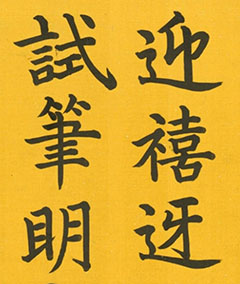 迎禧迓
試筆明